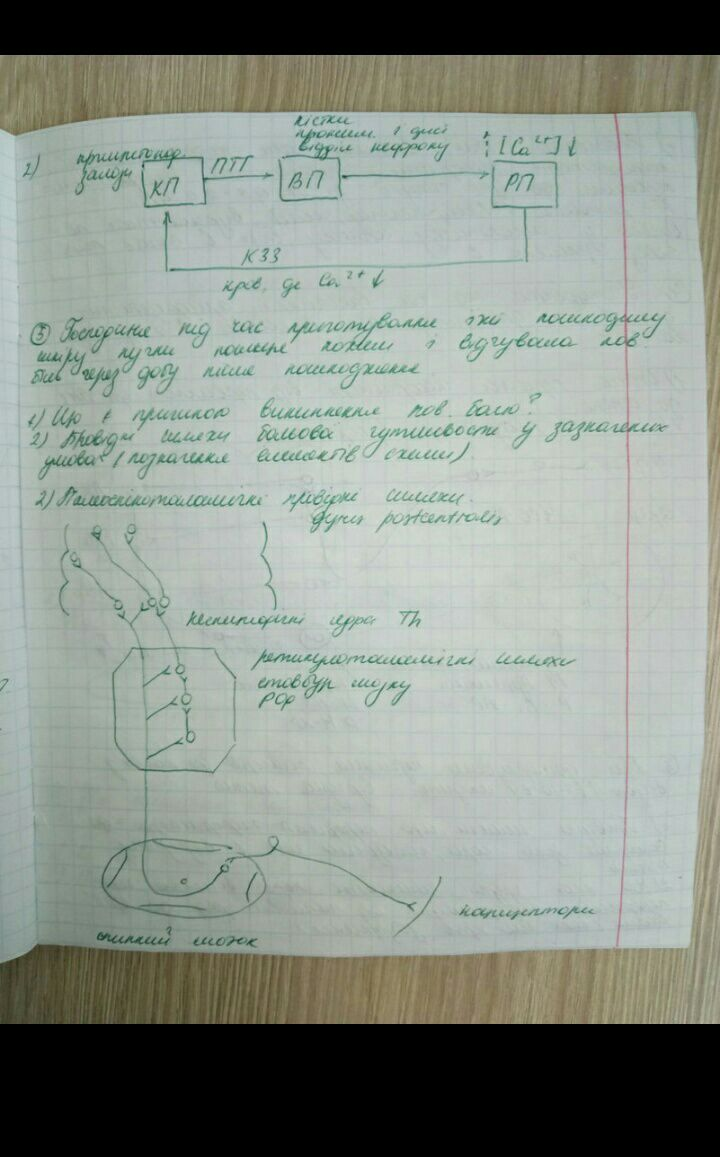 кістки
проксим. і дист
відділ нефрону
2) прищитопод. ↑ [Ca²⁺] ↓
залози ХП ПТГ ВП РП
КЗЗ
кров, де Ca²⁺ ↓
③ Господиня під час приготування їжі пошкодила
шкіру пучки пальця ножем і відчувала пов.
біль через добу після пошкодження
1) Що є причиною виникнення пов. болю?
2) Провідні шляхи больової чутливості у зазначених
умовах (позначення елементів схеми)
2) Палеоспіноталамічні провідні шляхи.
gyrus postcentralis
неспецифічні ядра Th
ретикулоталамічні шляхи
стовбур мозку
РФ
ноцицептори
спинний мозок